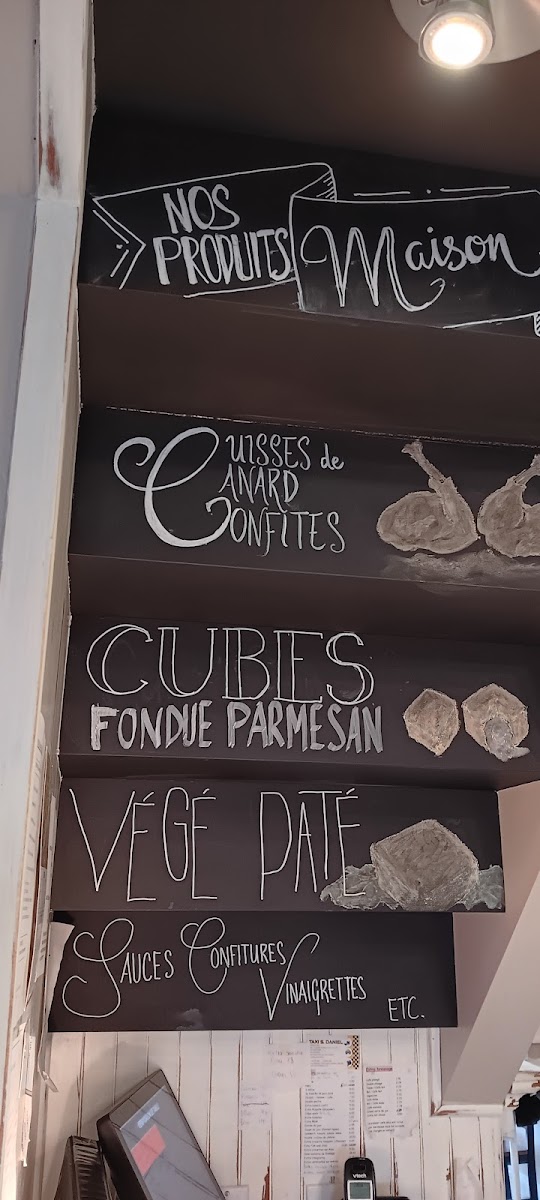 NOS
PRODUITS Maison
CUISSES de
CANARD
CONFITES
CUBES
FONDUE PARMESAN
VÉGÉ PATÉ
SAUCES CONFITURES
VINAIGRETTES
ETC.
TAXI & DANIEL
vtech